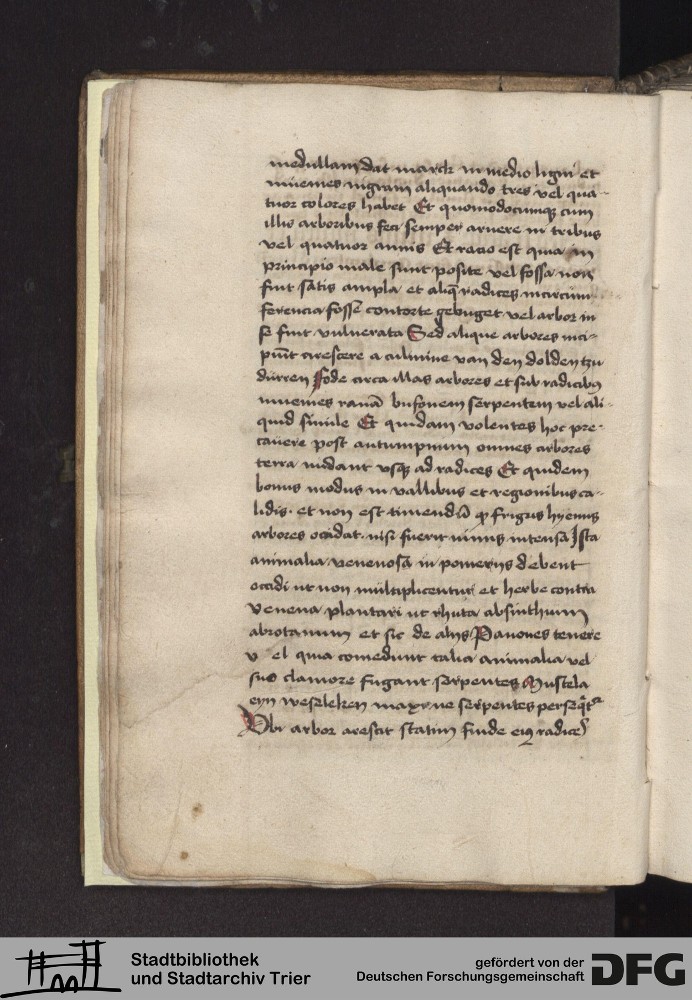 medullam dat marck in medio ligni et
inuenies nigram aliquando tres vel qua-
tuor colores habet Et quomodocumqꝫ cum
illis arboribus feci semper aruere in tribus
vel quatuor annis Et racio est quia in
principio male sunt posite vel fossa non
fuit satis ampla et aliqͣ radices in circum-
ferencia fosse contorte gebuget vel arbor in
se fuit vulnerata Sed alique arbores inci-
piūt arescere a culmine van den dolden tzu
dürren Fode circa illas arbores et sub radicibꝫ
inuenies ranā bufonem serpentem vel ali-
quid simile Et quidam volentes hoc pre-
cauere post autumpnum omnes arbores
terra nudant vsqꝫ ad radices Et quidem
bonus modus in vallibus et regionibus ca-
lidis et non est timendū ꝙ frigus hyemis
arbores occidat nisi fuerit nimis intensa Ista
animalia venenosa in pomerijs debent
occidi ut non multiplicentur et herbe contra
venena plantari ut rhuta absinthium
abrotanum et sic de alijs Pauones tenere
v el quia comedunt talia animalia vel
suo clamore fugant serpentes Mustela
eyn weselchen maxime serpentes perseqͥtͬ
Vbi arbor arescit statim finde eiꝰ radicē
Stadtbibliothek
und Stadtarchiv Trier
gefördert von der
Deutschen Forschungsgemeinschaft
DFG